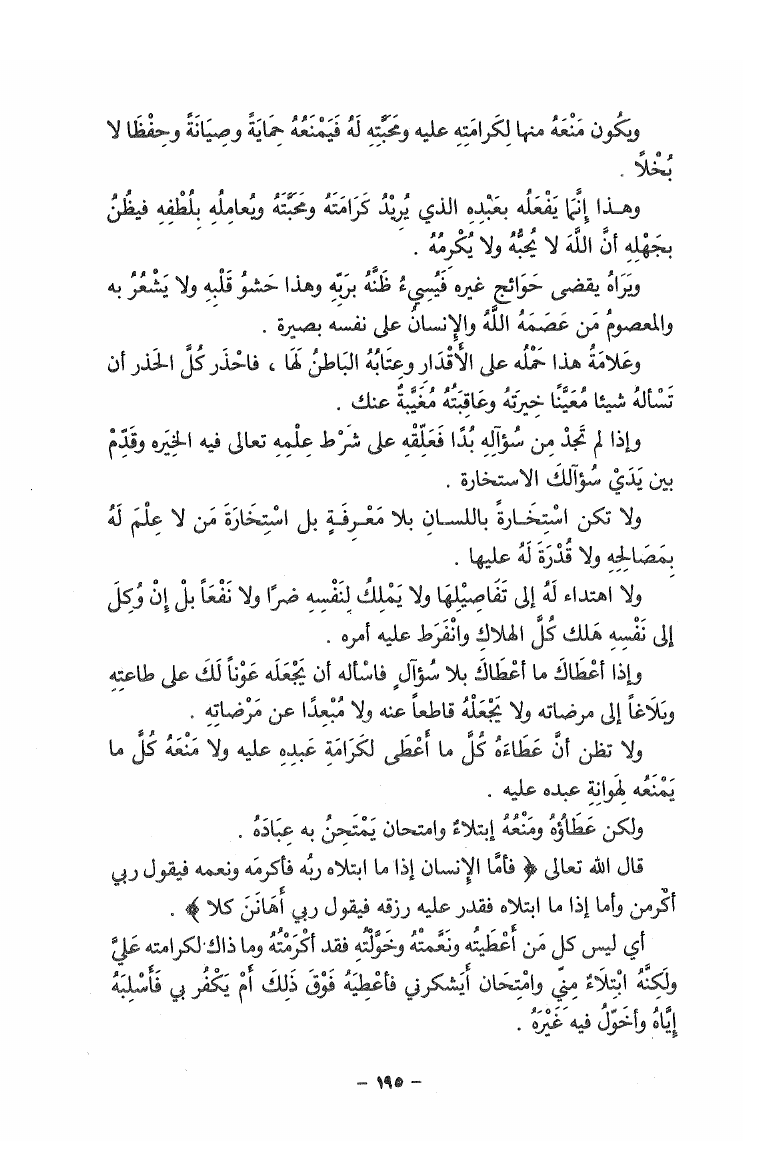 ويكُون مَنْعَهُ منها لِكَرامَتِهِ عليه ومَحَبَّتِهِ لَهُ فَيَمْنَعُهُ حِمَايَةً وصِيَانَةً وحِفْظًا لا
بُخْلًا .
وهـذا إنَّمَا يَفْعَلُه بعَبْدِهِ الذي يُرِيْدُ كَرَامَتَهُ ومَحَبَّتَهُ ويُعامِلُه بِلُطْفِهِ فيظُنُ
بجَهْلِهِ أنَّ اللَّهَ لا يُحبُّهُ ولا يُكْرِمُهُ .
ويَرَاهُ يقضى حَوَائج غيره فَيُسِيءُ ظَنَّهُ برَبِّهِ وهذا حَشوُ قَلْبِهِ ولا يَشْعُرُ به
والمعصومُ مَن عَصَمَهُ اللَّهُ والإِنسانُ على نفسه بصيرة .
وعَلامَةُ هذا حَمْلُه على الأَقْدَارِ وعتابُهُ البَاطنُ لَها ، فاحْذَر كُلَّ الحَذر أن
تَسْأَلهُ شيئا مُعَيَّنًا خِيرَتَهُ وعَاقِبَتُهُ مُغَيَّبةٌ عنك .
وإذا لم تَجِدْ مِن سُؤآلِهِ بُدًا فَعَلِّقْهِ على شَرْط عِلْمِهِ تعالى فيه الخِيَره وقَدِّمْ
بين يَدَيْ سُؤآلكَ الاستخارة .
ولا تكن اسْتِخَـارةً باللسـانِ بلا مَعْـرِفَـةٍ بل اسْتِخَارَةَ مَن لا عِلْمَ لَهُ
بِمَصَالِحِهِ ولا قُدْرَةَ لَهُ عليها .
ولا اهتداء لَهُ إلى تَفَاصِيْلِهَا ولا يَمْلِكُ لِنَفْسِهِ ضرًا ولا نَفْعَاً بلْ إنْ وُكِلَ
إلى نَفْسِهِ هَلك كُلَّ الهلاكِ وانْفَرَط عليه أمره .
وإذا أعْطَاكَ ما أعْطَاكَ بلا سُؤآلٍ فاسْأله أن يَجْعَلَه عَوْناً لَكَ على طاعتِهِ
وبَلَاغاً إلى مرضاته ولا يَجْعَلْهُ قاطعاً عنه ولا مُبْعِدًا عن مَرْضاتِهِ .
ولا تظن أنَّ عَطَاءَهُ كُلَّ ما أَعْطَى لكَرَامَةِ عَبدِهِ عليه ولا مَنْعَهُ كُلَّ ما
يَمْنَعُه لِهوانِةِ عبده عليه .
ولكن عَطَاؤُهُ ومَنْعُهُ إبتلاءٌ وامتحان يَمْتَحِنُ به عِبَادَهُ .
قال الله تعالى ﴿ فأمَّا الإِنسان إذا ما ابتلاه ربُه فأكرمَه ونعمه فيقول ربي
أكْرمن وأما إذا ما ابتلاه فقدر عليه رزقه فيقول ربي أَهَانَنَ كلا ﴾ .
أي ليس كل مَن أَعْطَيتُه ونَعَّمتْهُ وخَوَّلْتُهِ فقد أكْرَمْتُهُ وما ذاك لكرامته عَليَّ
ولَكِنَّهُ ابْتِلَاءٌ مِنّي وامْتِحَان أيَشكرني فأعْطِيَهُ فَوْقَ ذَلِكَ أمْ يَكْفُر بِي فَأَسْلِبَهُ
إيَّاهُ وأخَوِّلُ فيه غَيْرَهُ .
– ١٩٥ –